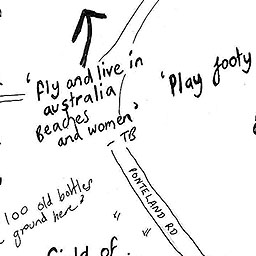 'fly and live in
australia
Beaches
and women'
- TB
'Play footy
PONTELAND RD
100 old bottles
ground here'
field of